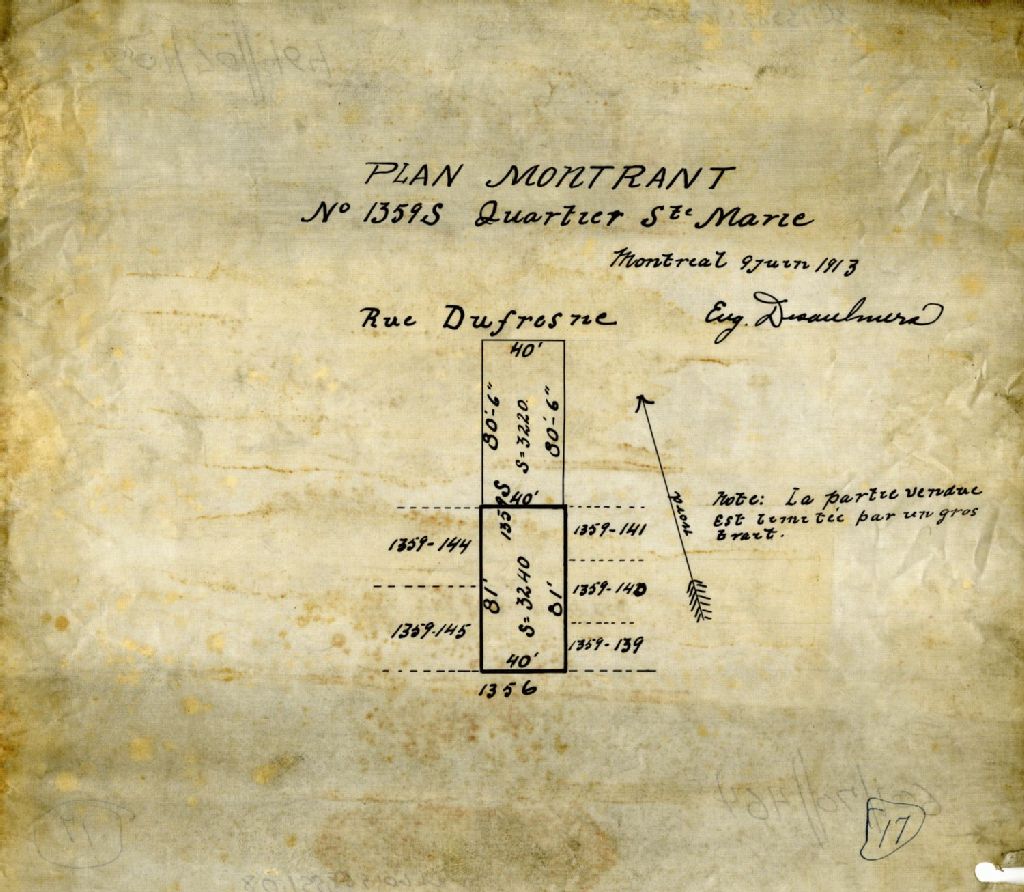 PLAN MONTRANT
No 1359S Quartier Ste Marie
Montreal 9 Juin 1913
Eug. Desaulniers
Rue Dufresne
40'
80'-6"
S=3220.
80'-6"
40'
1359S
1359-144
1359-141
81'
S=3240
81'
1359-140
1359-145
1359-139
40'
1356
Nord
Note: La partie vendue
Est limitée par un gros
trait.
17